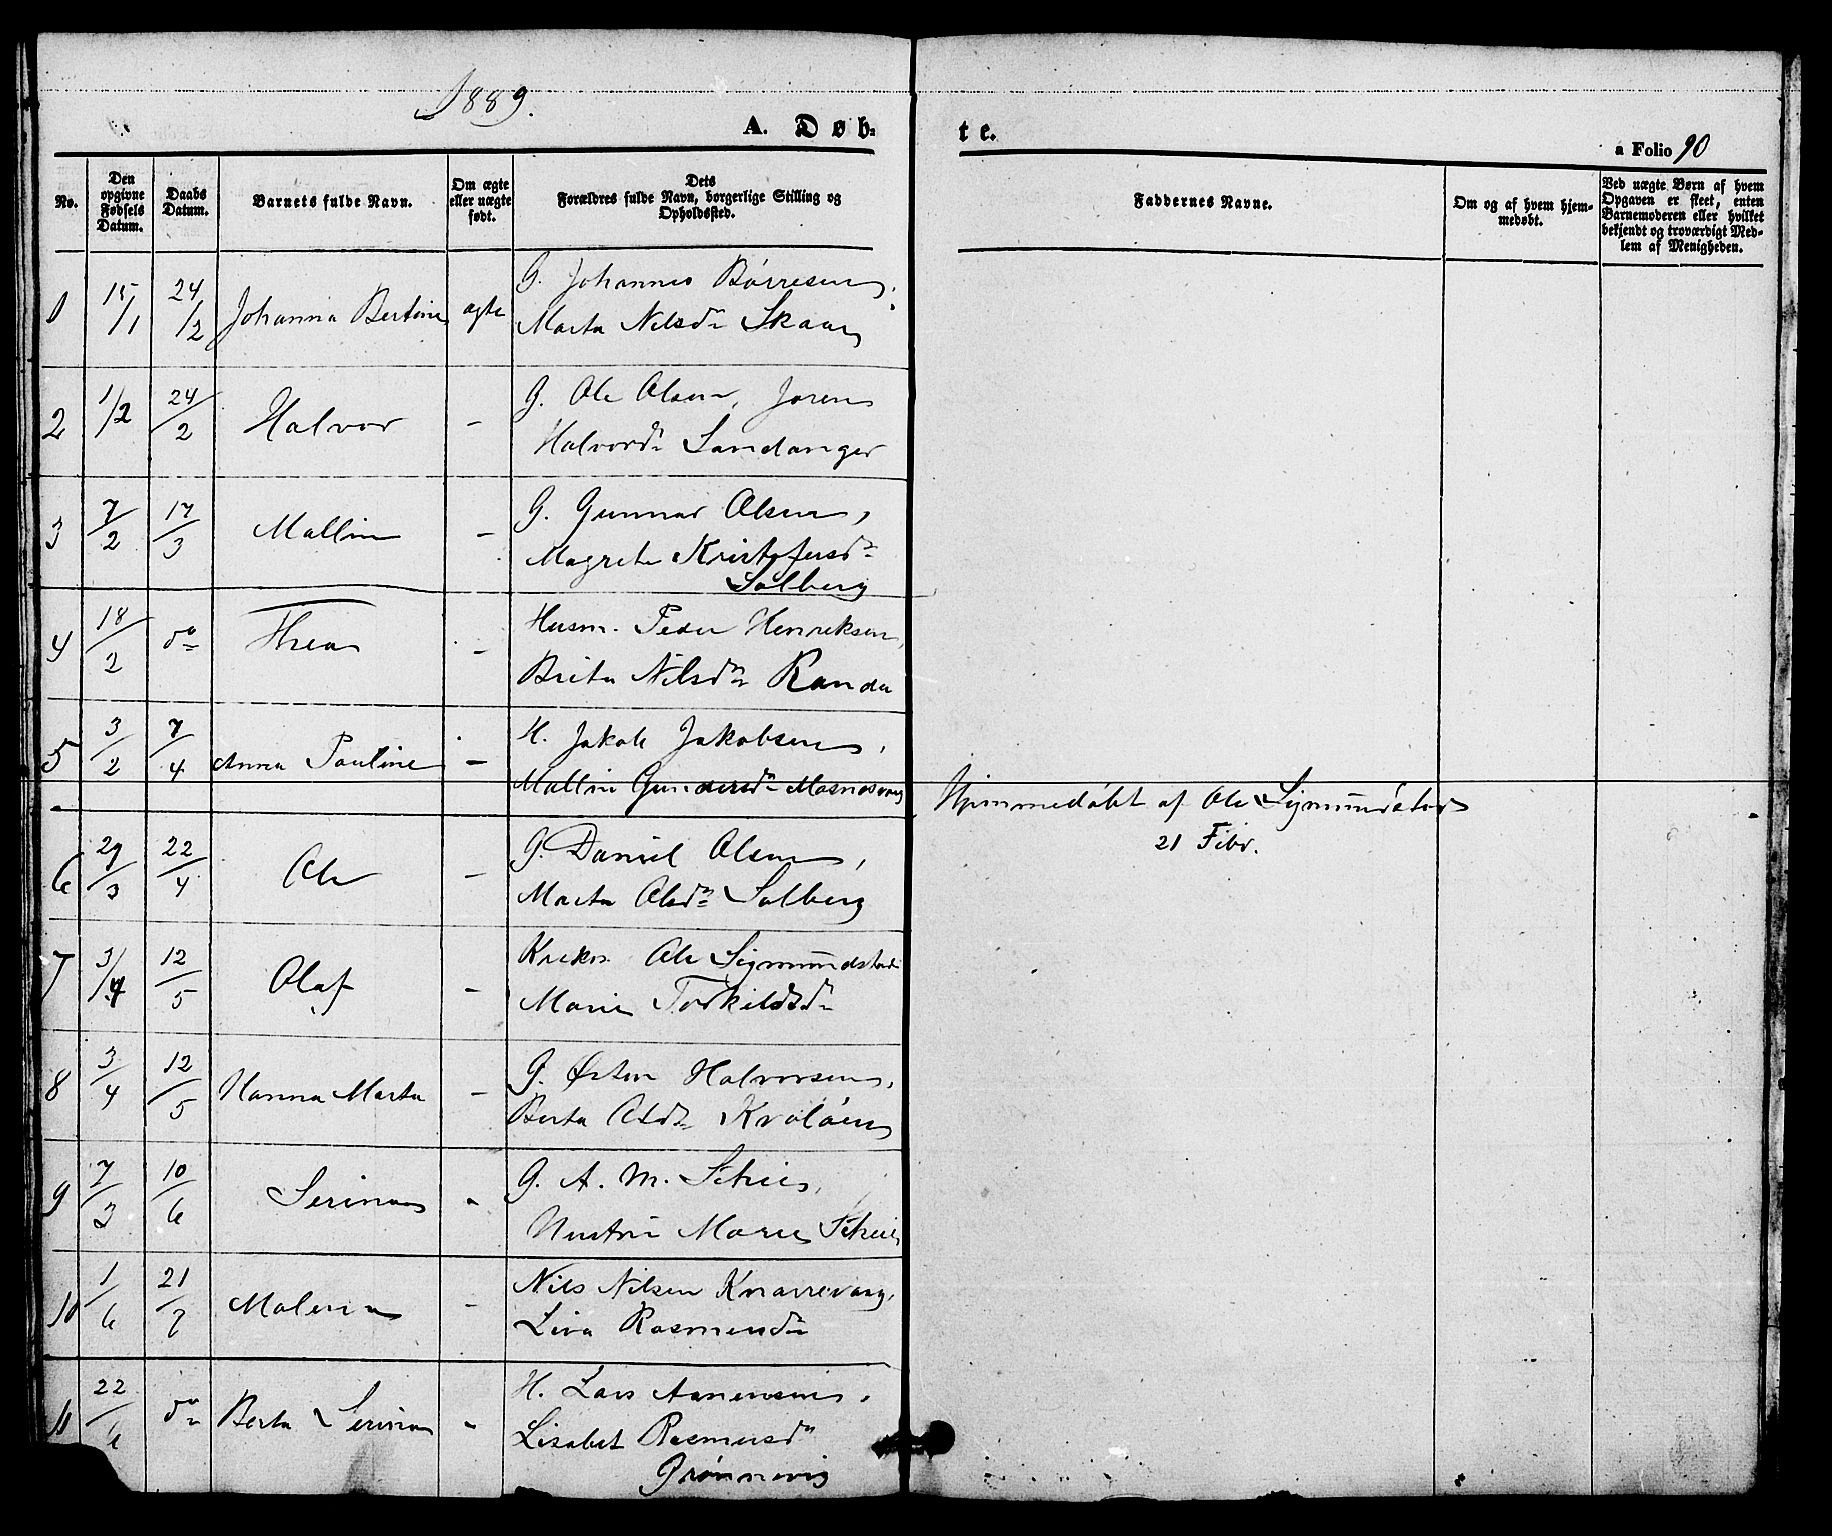 1889.
A. Døb=
te.
a Folio 90
No.
Den opgivne Fødsels Datum.
Daabs Datum.
Barnets fulde Navn.
Om ægte eller uægte født.
Dets Forældres fulde Navn, borgerlige Stilling og Opholdssted.
Faddernes Navne.
Om og af hvem hjemmedøbt.
Ved uægte Børn af hvem Opgaven er skeet, enten Barnemoderen eller hvilket bekjendt og troværdigt Medlem af Menigheden.
1 15/1 24/2 Johanna Bertine ægte G. Johannes Børresen,
Marta Nilsdr Skaar
2 1/2 24/2 Halvor - G. Ole Olsen, Joren
Halvordr Sandanger
3 7/2 17/3 Mallin - G. Gunnar Olsen,
Magrete Kristofersdr
Solberg
4 18/2 do Thea - Husm. Peder Henriksen,
Brita Nilsdr Randa
5 3/2 7/4 Anna Pauline - H. Jakob Jakobsen,
Mallin Gundersdr Masnesvaag
Hjemmedøbt af Ole Sigmundstad
21 Febr.
6 29/3 22/4 Ole - G. Daniel Olsen,
Marta Olsdr Solberg
7 3/4 12/5 Olaf - Ole Sigmundstad
Marie Torkildsdr
8 3/4 12/5 Hanna Marta - G. Østen Halvorsen,
Berta Olsdr Kvaløen
9 7/3 10/6 Serina - G. A. M. Scheie,
Hustru Marie Scheie
10 1/6 21/7 Malena - Nils Nilsen Knarrevaag,
Liva Rasmusdr
11 22/6 do Berta Serina - H. Lars Aanensen,
Lisabet Rasmusdr
Grønnevig